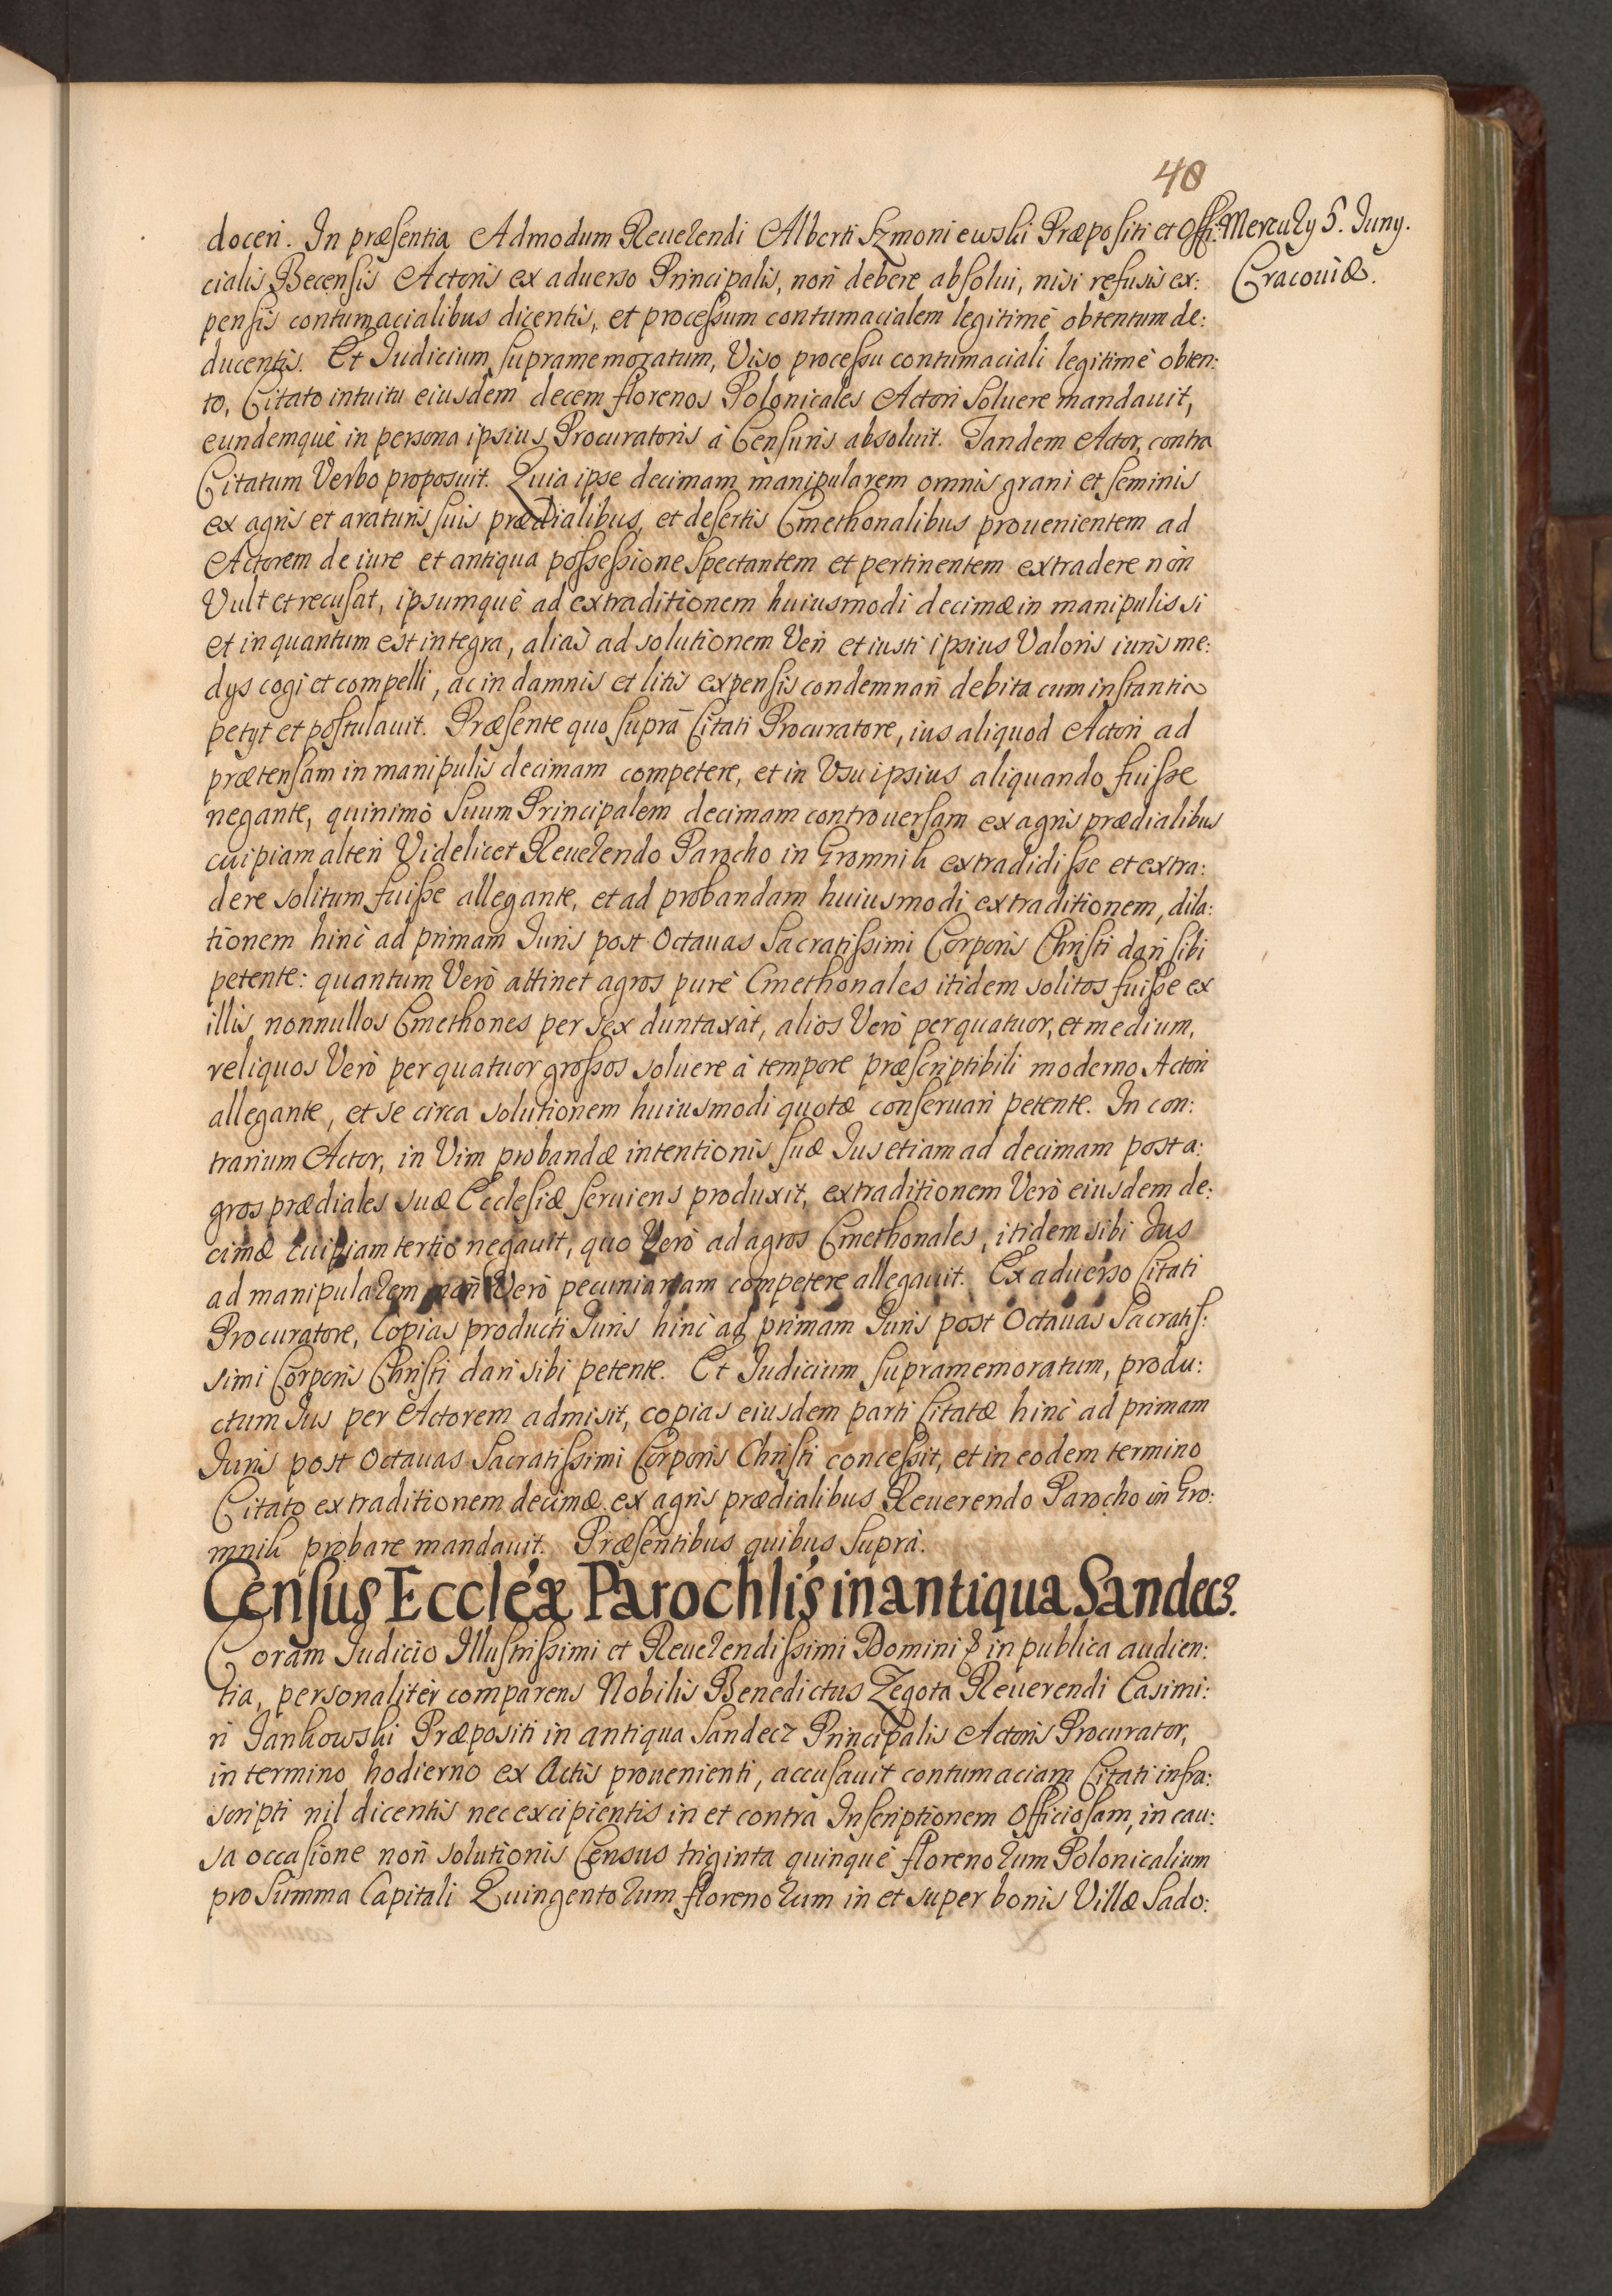 40
doceri. In præsentia Admodum Reuerendi Alberti Szmoniewski Præpositi et Offi:
Mercury 5. Juny.
Cracouiæ.
cialis Becensis Actoris ex aduerso Principalis, non debere absolui, nisi refusis ex:
pensis contumacialibus dicentis, et processum contumacialem legitimè obtentum de:
ducentis. Et Judicium supramemoratum, Viso processu contumaciali legitimè obten:
to, Citato intuitu eiusdem decem florenos Polonicales Actori soluere mandauit,
eundemquè in persona ipsius Procuratoris à Censuris absoluit. Tandem Actor, contra
Citatum Verbo proposuit. Quia ipse decimam manipularem omnis grani et seminis
ex agris et araturis suis prædialibus, et desertis Cmethonalibus prouenientem ad
Actorem de iure et antiqua possessione spectantem et pertinentem extradere non
Vult et recusat, ipsumquè ad extraditionem huiusmodi decimæ in manipulis si
et in quantum est integra, aliàs ad solutionem Veri et iusti ipsius Valoris iuris me:
dys cogi et compelli, ac in damnis et litis expensis condemnari debita cum instantia
petyt et postulauit. Præsente quo suprà Citati Procuratore, ius aliquod Actori ad
prætensam in manipulis decimam competere, et in Vsu ipsius aliquando fuisse
negante, quinimò suum Principalem decimam controuersam ex agris prædialibus
cuipiam alteri Videlicet Reuerendo Parocho in Gromnik extradidisse et extra:
dere solitum fuisse allegante, et ad probandam huiusmodi extraditionem, dila:
tionem hinc ad primam Juris post Octauas Sacratissimi Corporis Christi dari sibi
petente: quantum Verò attinet agros purè Cmethonales itidem solitos fuisse ex
illis nonnullos Cmethones per sex duntaxàt, alios Verò per quatuor, et medium,
reliquos Verò per quatuor grossos soluere à tempore præscriptibili moderno Actori
allegante, et se circa solutionem huiusmodi quotæ conseruari petente. In con:
trarium Actor, in Vim probandæ intentionis suæ Jus etiam ad decimam post a:
gros prædiales suæ Ecclesiæ seruiens produxit, extraditionem Verò eiusdem de:
cimæ cuipiam tertio negauit, quo Verò ad agros Cmethonales, itidem sibi Jus
ad manipularem non Verò pecuniariam competere allegauit. Ex aduerso Citati
Procuratore, Copias producti Juris hinc ad primam Juris post Octauas Sacratis:
simi Corporis Christi dari sibi petente. Et Judicium supramemoratum, produ:
ctum Jus per Actorem admisit, copias eiusdem parti Citatæ hinc ad primam
Juris post Octauas Sacratissimi Corporis Christi concessit, et in eodem termino
Citato extraditionem decimæ ex agris prædialibus Reuerendo Parocho in Gro:
mnik probare mandauit. Præsentibus quibus suprà.
Census Eccleæ Parochlis in antiqua Sandecz.
Coram Judicio Illustrissimi et Reuerendissimi Domini & in publica audien:
tia, personalitèr comparens Nobilis Benedictus Zegota Reuerendi Casimi:
ri Jankowski Præpositi in antiqua Sandecz Principalis Actoris Procurator,
in termino hodierno ex Actis prouenienti, accusauit contumaciam Citati infra:
scripti nil dicentis nec excipientis in et contra Inscriptionem Officiosam, in cau:
sa occasione non solutionis Census triginta quinquè florenorum Polonicalium
pro Summa Capitali Quingentorum florenorum in et super bonis Villæ Sado: